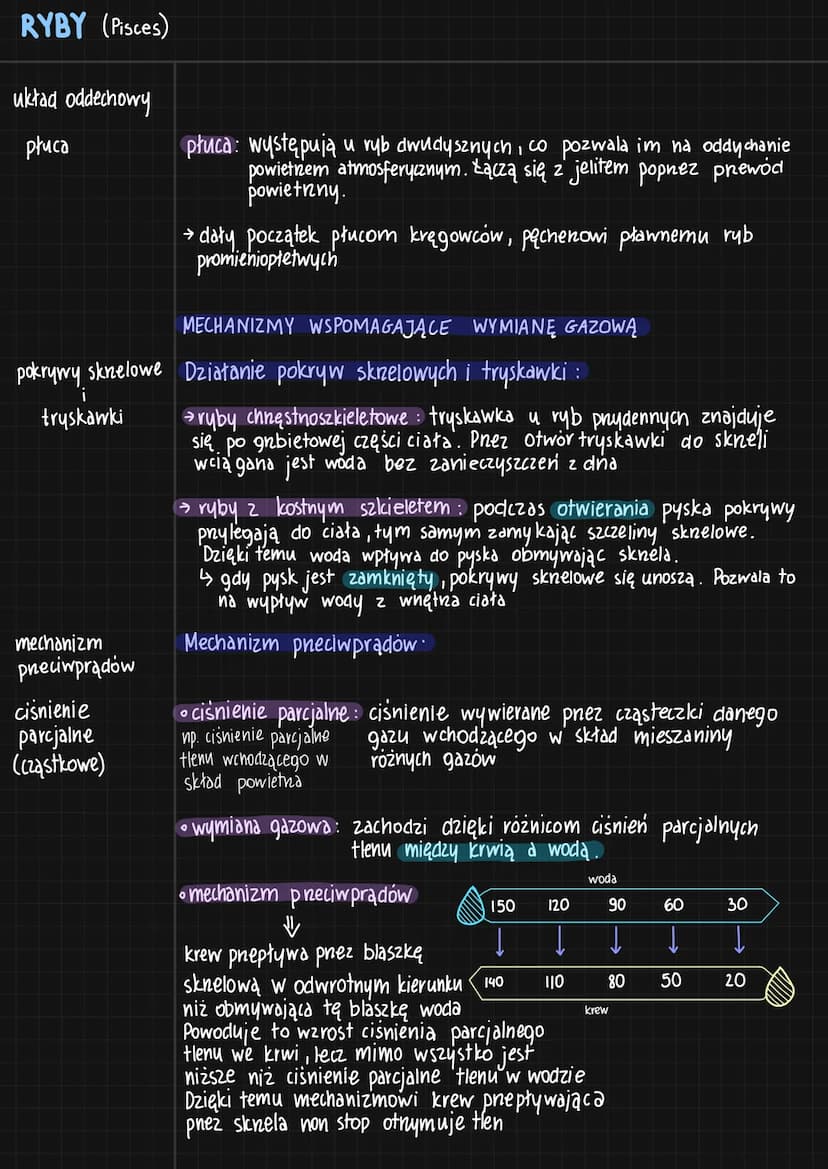 RYBY (Pisces)
układ oddechowy
płuca
płuca: występują u ryb dwudysznych, co pozwala im na oddychanie
powietrzem atmosferycznym. Łączą się z jelitem poprzez przewód
powietrzny.
→ dały początek płucom kręgowców, pęcherzowi pławnemu ryb
promieniopłetwych
MECHANIZMY WSPOMAGAJĄCE WYMIANĘ GAZOWĄ
pokrywy skrzelowe
i
tryskawki
Działanie pokryw skrzelowych i tryskawki:
→ ryby chrzęstnoszkieletowe: tryskawka u ryb przydennych znajduje
się po grzbietowej części ciała. Przez otwór tryskawki do skrzeli
wciągana jest woda bez zanieczyszczeń z dna
→ ryby z kostnym szkieletem: podczas otwierania pyska pokrywy
przylegają do ciała, tym samym zamykając szczeliny skrzelowe.
Dzięki temu woda wpływa do pyska obmywając skrzela.
↳ gdy pysk jest zamknięty, pokrywy skrzelowe się unoszą. Pozwala to
na wypływ wody z wnętrza ciała
mechanizm
przeciwprądów
Mechanizm przeciwprądów:
ciśnienie
parcjalne
(cząstkowe)
• ciśnienie parcjalne: ciśnienie wywierane przez cząsteczki danego
gazu wchodzącego w skład mieszaniny
różnych gazów
np. ciśnienie parcjalne
tlenu wchodzącego w
skład powietrza
• wymiana gazowa: zachodzi dzięki różnicom ciśnień parcjalnych
tlenu między krwią a wodą.
• mechanizm przeciwprądów
⇓
krew przepływa przez blaszkę
skrzelową w odwrotnym kierunku
niż obmywająca tę blaszkę woda
Powoduje to wzrost ciśnienia parcjalnego
tlenu we krwi, lecz mimo wszystko jest
niższe niż ciśnienie parcjalne tlenu w wodzie
Dzięki temu mechanizmowi krew przepływająca
przez skrzela non stop otrzymuje tlen
woda
150 120 90 60 30
140 110 80 50 20
krew